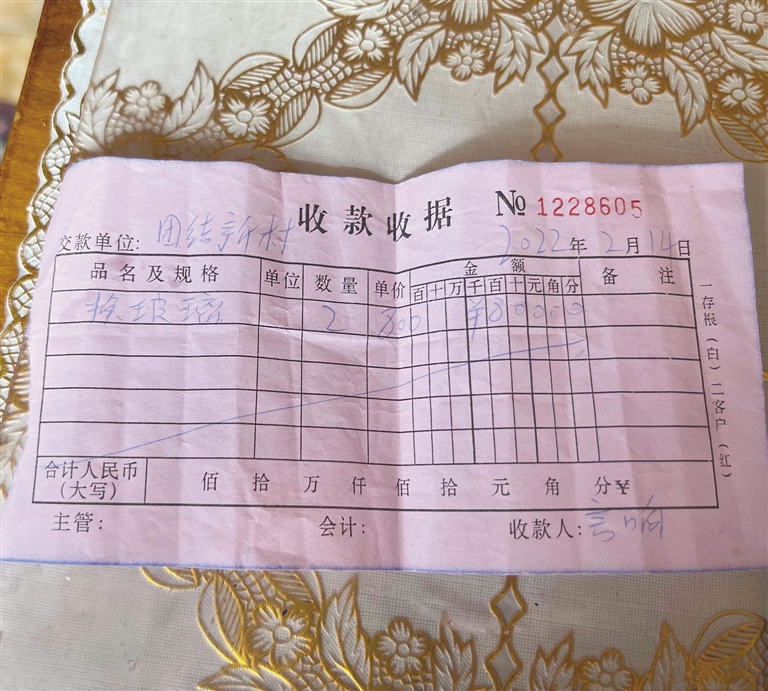 收款收据 № 1228605
交款单位: 团结新村 2022年2月14日
品名及规格 单位 数量 单价 金额 备注
百十万千百十元角分
换玻璃 2 800 ¥80000
合计人民币(大写) 佰 拾 万 仟 佰 拾 元 角 分¥
主管: 会计: 收款人:
一存根(白)二客户(红)